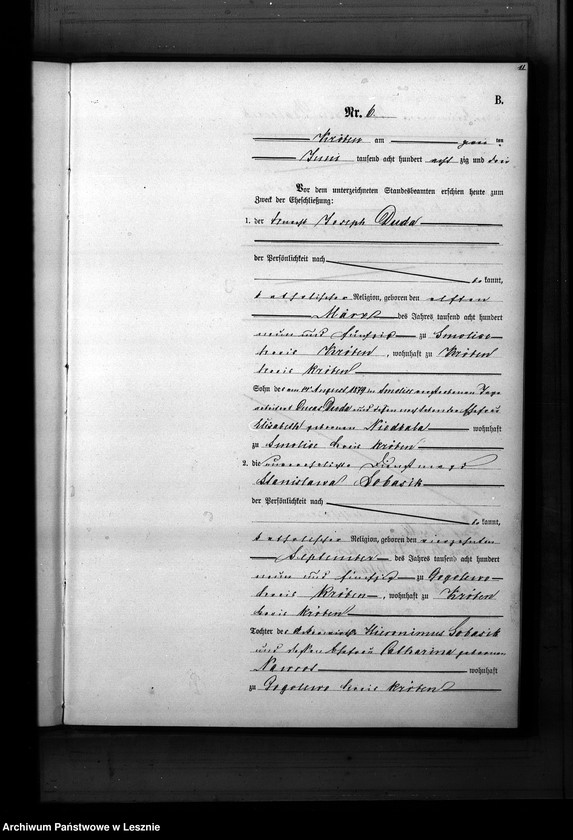 B.
Nr. 6
Kröben am zwei ten
Juni tausend acht hundert acht zig und drei
Vor dem unterzeichneten Standesbeamten erschien heute zum
Zweck der Eheschließung:
1. der Knecht Joseph Duda
der Persönlichkeit nach
be kannt,
katholischer Religion, geboren den elften
März des Jahres tausend acht hundert
neun und fünfzig zu Smolice
Kreis Kröben, wohnhaft zu Kröben
Kreis Kröben
Sohn des am August 1879 in Smolice verstorbenen Tage
arbeiters Duda und dessen noch lebenden Ehefrau
Elisabeth geborenen Niedbala wohnhaft
zu Smolice Kreis Kröben
2. die unverehelichte Dienstmagd
Stanislawa Sobasik
der Persönlichkeit nach
be kannt,
katholischer Religion, geboren den vierzehnten
September des Jahres tausend acht hundert
neun und fünfzig zu Gogolewo
Kreis Kröben, wohnhaft zu Kröben
Kreis Kröben
Tochter des Hieronimus Sobasik
und dessen Ehefrau Catharina geborenen
Nawrot wohnhaft
zu Gogolewo Kreis Kröben
Archiwum Państwowe w Lesznie